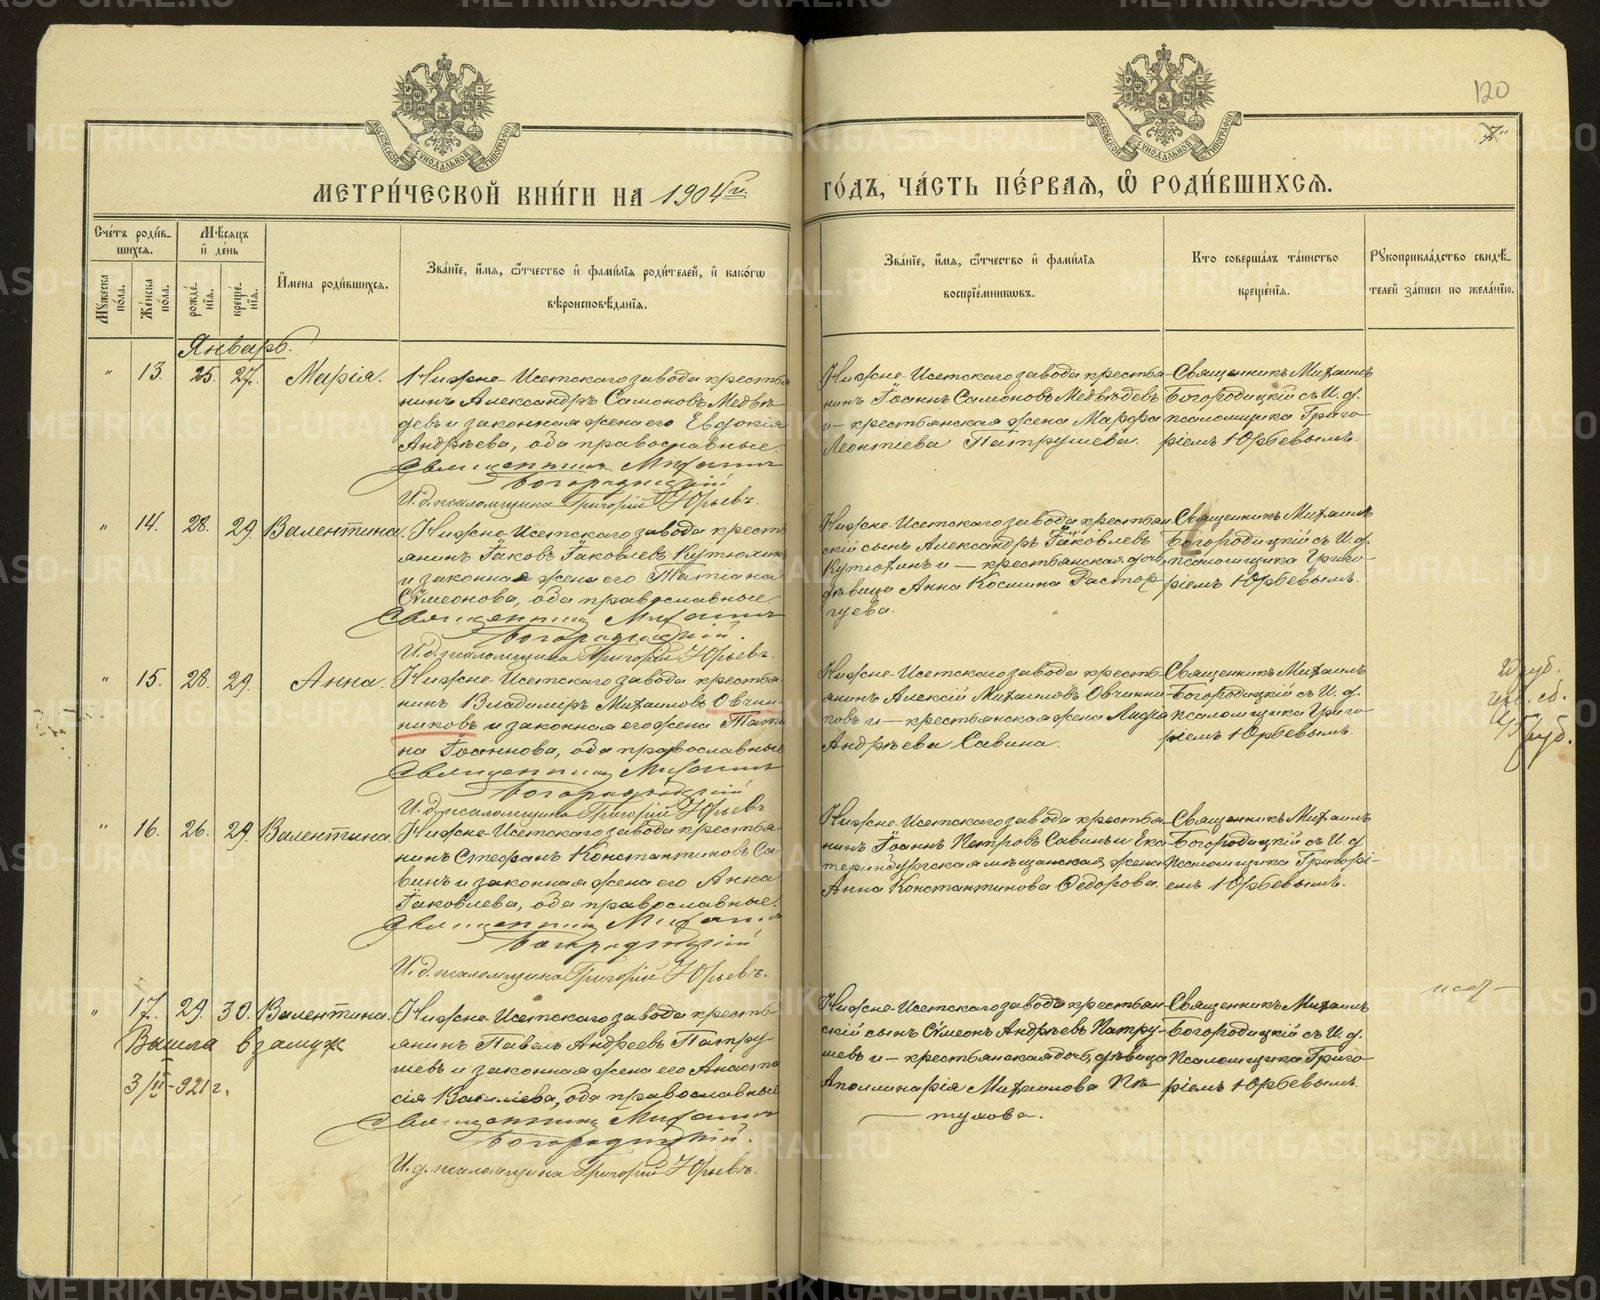 120
7
МОСКОВСКОЙ СѴНОДАЛЬНОЙ ТИПОГРАФІИ
МОСКОВСКОЙ СѴНОДАЛЬНОЙ ТИПОГРАФІИ
МЕТРИ́ЧЕСКОЙ КНИ́ГИ НА 1904 г.
ГО́ДЪ, ЧА́СТЬ ПЕ́РВАЯ, Ѽ РОДИ́ВШИХСЯ.
Сче́тъ роди́в-
шихся.
Мꙋ́жеска пола.
Же́нска пола.
Мѣ́сяцъ и де́нь
рожде́нїя.
креще́нїя.
И́мена роди́вшихся.
Зва́нїе, и́мя, ѻ́тчество и фами́лїя роди́телей, и како́гѡ
вѣроисповѣ́данїя.
Зва́нїе, и́мя, ѻ́тчество и фами́лїя
воспрїе́мниковъ.
Кто соверша́лъ та́инство
креще́нїя.
Рꙋкоприкла́дство свидѣ́-
телей за́писи по жела́нїю.
Январь.
" 13. 25. 27. Марія.
Нижне-Исетскаго завода крестья-
нинъ Александръ Самоновъ Медвѣ-
девъ и законная жена его Евдокія
Андрѣева, оба православные.
Священникъ Михаилъ
Богородицкій
И. д. псаломщика Григорій Юрьевъ.
Нижне-Исетскаго завода крестья-
нинъ Іоаннъ Самоновъ Медвѣдевъ
и - крестьянская жена Марѳа
Леонтіева Патрушева.
Священникъ Михаилъ
Богородицкій съ И. д.
псаломщика Григо-
ріемъ Юрьевымъ.
" 14. 28. 29. Валентина.
Нижне-Исетскаго завода кресть-
янинъ Іаковъ Іаковлевъ Кутюхинъ
и законная жена его Татіана
Сѵмеонова, оба православные.
Священникъ Михаилъ
Богородицкій.
И. д. псаломщика Григорій Юрьевъ.
Нижне-Исетскаго завода крестьян-
скій сынъ Александръ Іаковлевъ
Кутюхинъ и - крестьянская дочь,
дѣвица Анна Космина Растор-
гуева.
Священникъ Михаилъ
Богородицкій съ И. д.
псаломщика Григо-
ріемъ Юрьевымъ.
" 15. 28. 29. Анна.
Нижне-Исетскаго завода крестья-
нинъ Владиміръ Михаиловъ Овчин-
никовъ и законная его жена Татіа-
на Іоаннова, оба православные
Священникъ Михаилъ
Богородицкій
И. д. псаломщика Григорій Юрьевъ
Нижне-Исетскаго завода кресть-
янинъ Алексій Михаиловъ Овчинни-
ковъ и - крестьянская жена Лидія
Андрѣева Савина.
Священникъ Михаилъ
Богородицкій съ И. д.
псаломщика Григо-
ріемъ Юрьевымъ.
руб.
сб.
руб.
" 16. 26. 29. Валентина.
Нижне-Исетскаго завода крестья-
нинъ Стефанъ Константиновъ Са-
винъ и законная жена его Анна
Іаковлева, оба православные.
Священникъ Михаилъ
Богородицкій
И. д. псаломщика Григорій Юрьевъ.
Нижне-Исетскаго завода крестья-
нинъ Іоаннъ Петровъ Савинъ и Ека-
теринбургская мѣщанская жена
Анна Константинова Федорова.
Священникъ Михаилъ
Богородицкій съ И. д.
псаломщика Григорі-
емъ Юрьевымъ.
" 17. 29. 30. Валентина.
Вышла взамуж
3/II-921 г.
Нижне-Исетскаго завода кресть-
янинъ Павелъ Андреевъ Патру-
шевъ и законная жена его Анаста-
сія Василіева, оба православные
Священникъ Михаилъ
Богородицкій.
И. д. псаломщика Григорій Юрьевъ.
Нижне-Исетскаго завода крестьян-
скій сынъ Сѵмеонъ Андрѣевъ Патру-
шевъ и - крестьянская дочь, дѣвица
Аполлинарія Михаилова Пѣ-
тухова.
Священникъ Михаилъ
Богородицкій съ И. д.
псаломщика Григо-
ріемъ Юрьевымъ.
METRIKI.GASO-URAL.RU